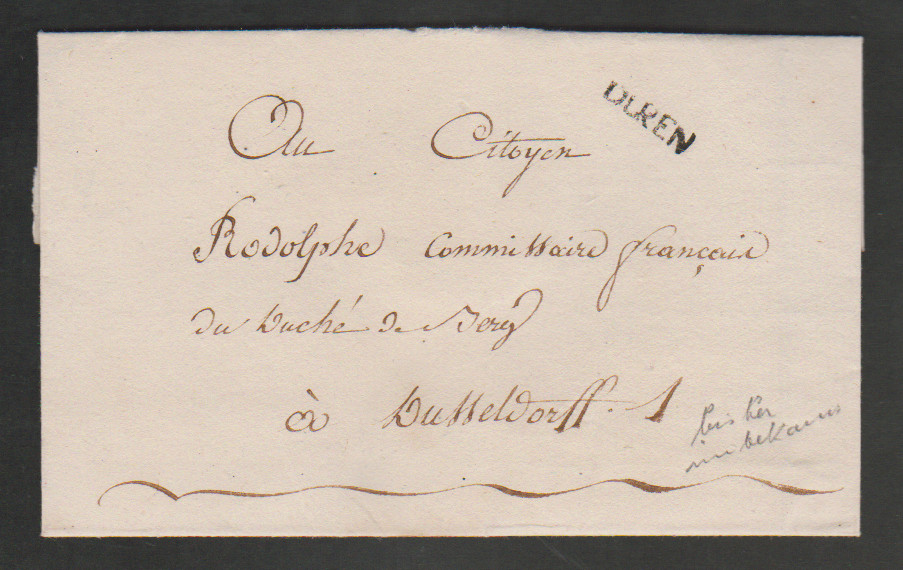 DUREN
Au Citoyen
Rodolphe Commissaire français
du Duché de Berg
à Dusseldorff. 1
bisher
unbekannt